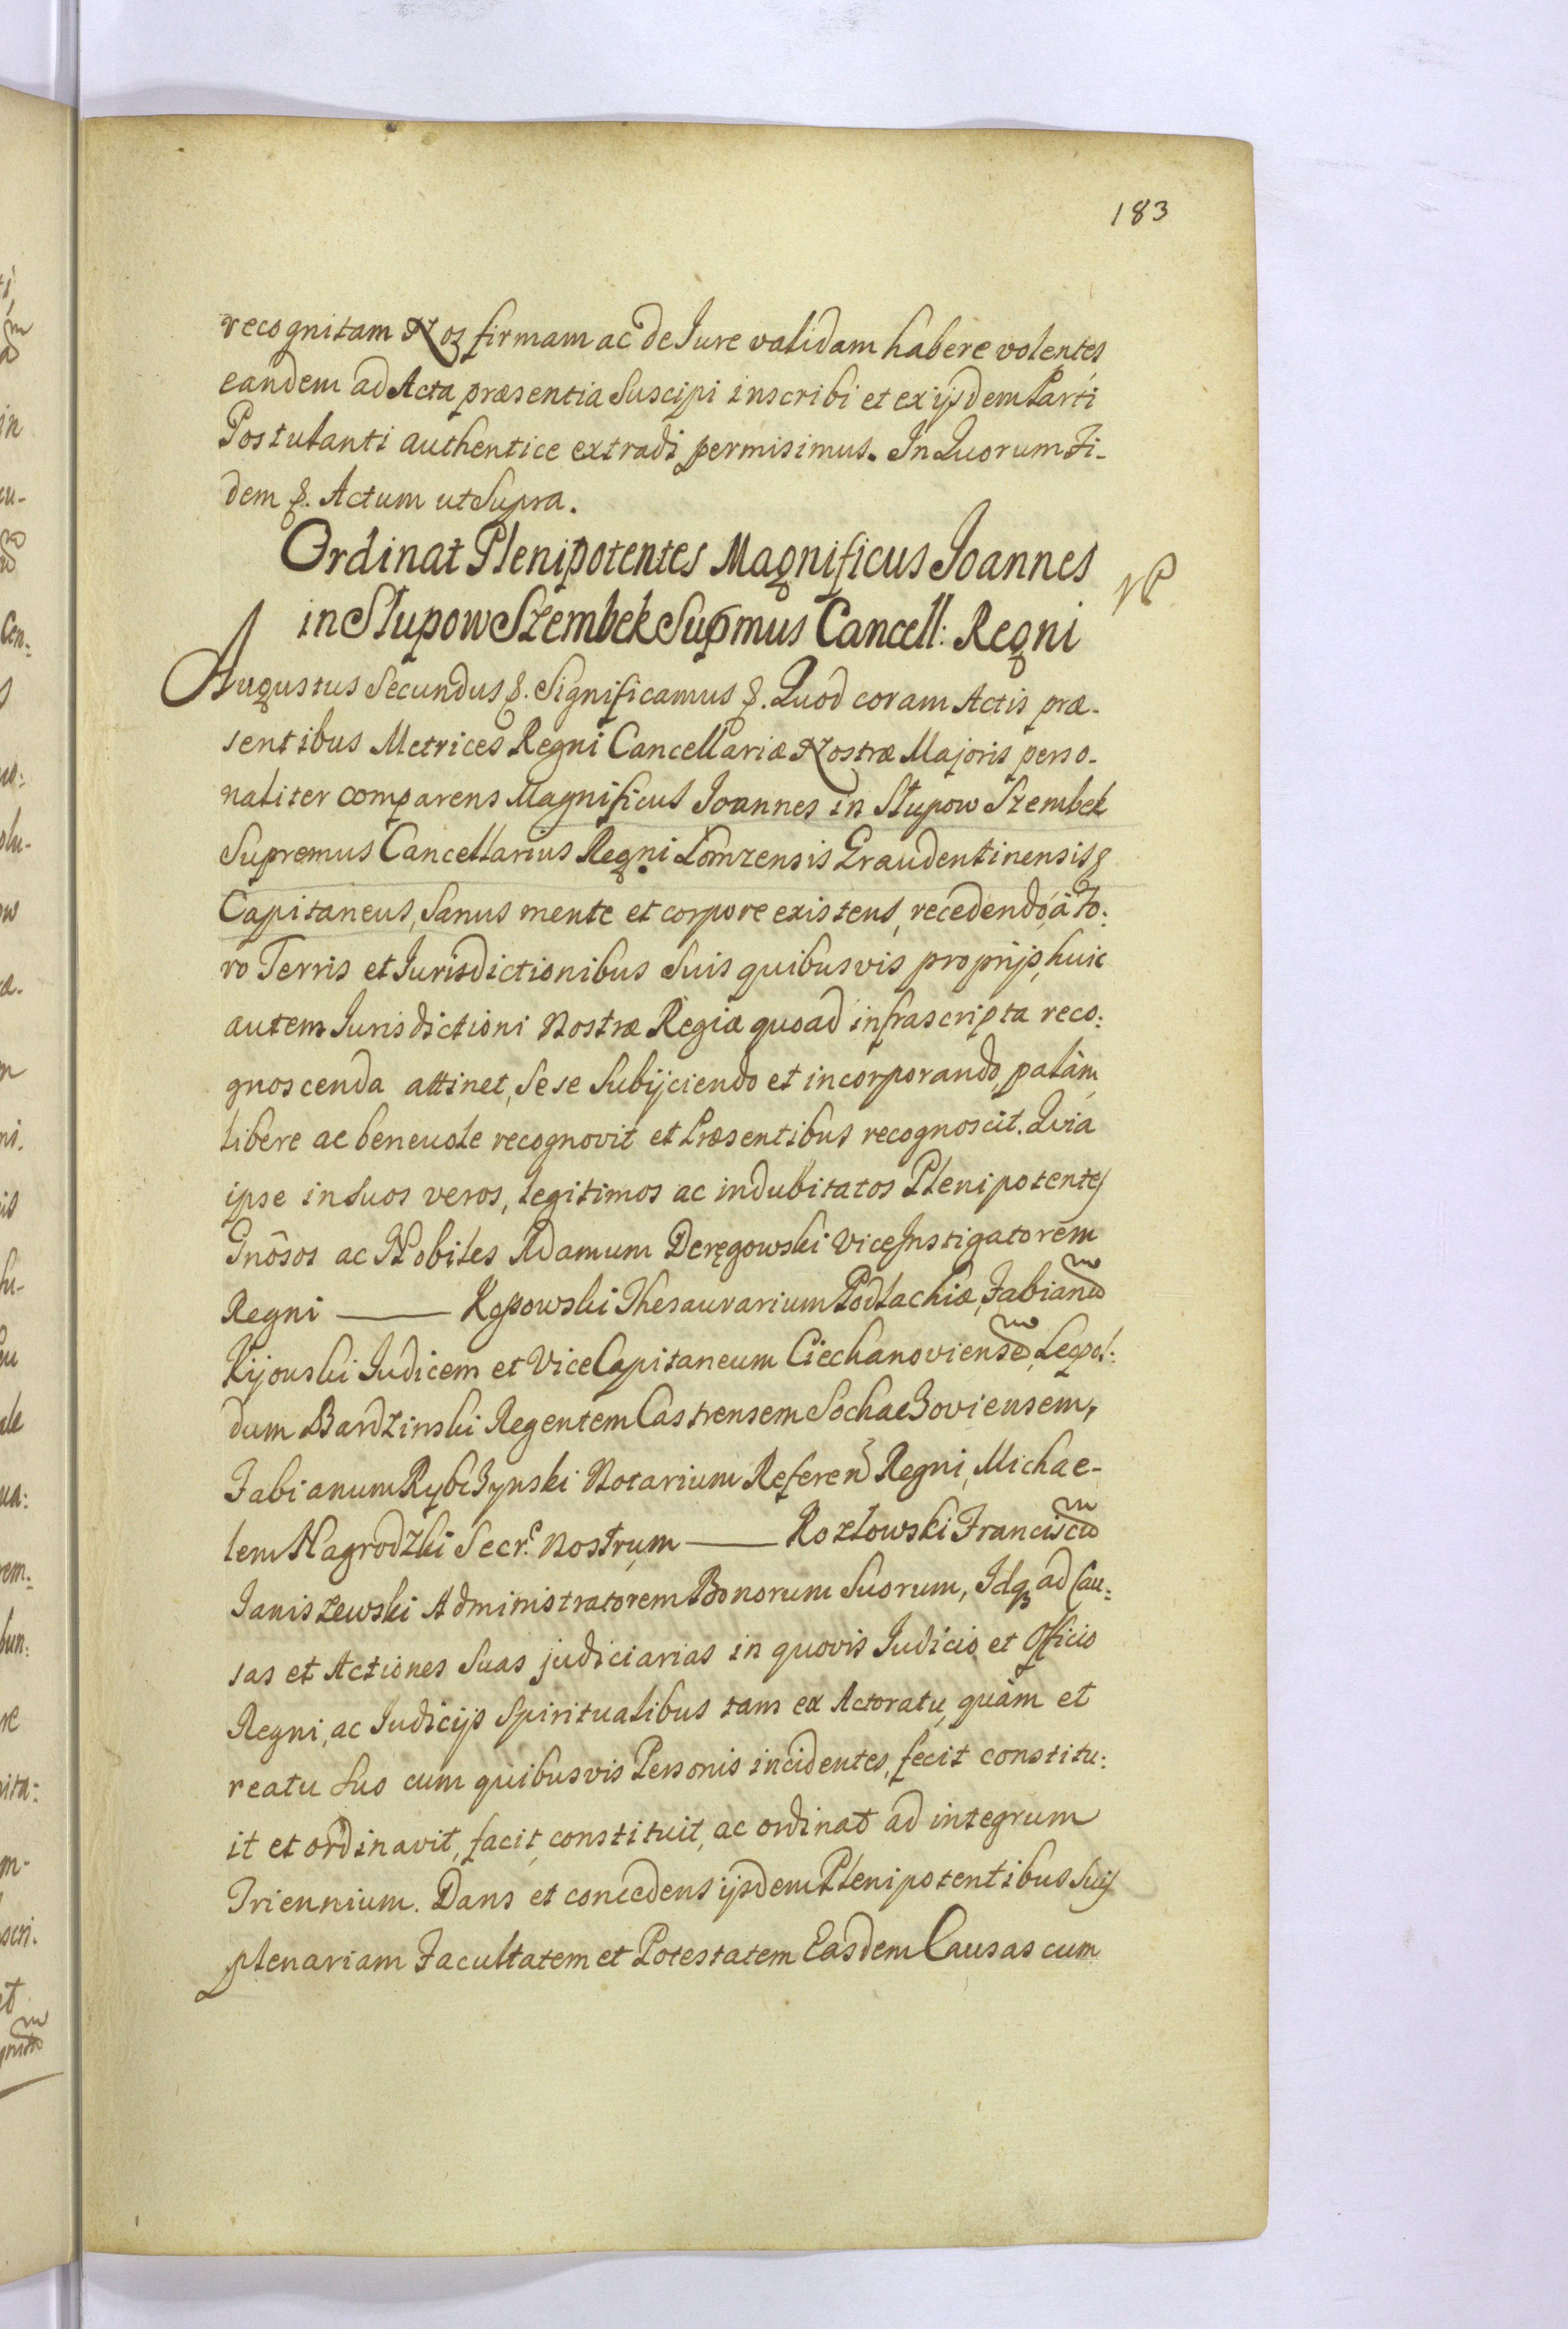 183
recognitam Nos firmam ac de Iure validam habere volentes,
eandem ad Acta præsentia Suscipi inscribi et ex ijsdem Parti
Postulanti authentice extradi permisimus. In Quorum Fi-
dem &. Actum ut Supra.
Ordinat Plenipotentes Magnificus Joannes
in Słupow Szembek Supmus Cancell: Regni
Augustus Secundus &. Significamus &. Quod coram Actis præ-
sentibus Metrices Regni Cancellariæ Nostræ Majoris perso-
naliter comparens Magnificus Joannes in Słupow Szembek
Supremus Cancellarius Regni Łomzensis Graudentinensis &
Capitaneus, Sanus mente et corpore existens, recedendo, à Fo:
ro Terris et Iurisdictionibus Suis quibusvis proprijs, huic
autem Jurisdictioni Nostræ Regiæ quoad infrascripta reco:
gnoscenda attinet, Sese Subijciendo et incorporando, palàm
libere ac benevole recognovit et Præsentibus recognoscit. Quia
ipse in Suos veros, legitimos ac indubitatos Plenipotentes
Gnôsos ac Nobiles Adamum Deręgowski ViceInstigatorem
Regni —— Kępowski Thesaurarium Podlachiæ, Fabianum
Kijouski Judicem et ViceCapitaneum Ciechanoviensem, Leopol:
dum Bardzinski Regentem Castrensem Sochaczoviensem,
Fabianum Rybczynski Notarium Referen Regni, Michae-
lem Nagrodzki Secr. Nostrum —— Kozłowski Franciscum
Janiszewski Administratorem Bonorum Suorum, Idq3 ad Cau:
sas et Actiones Suas judiciarias in quovis Judicio et Officio
Regni, ac Judicijs Spiritualibus tam ex Actoratu, quàm et
reatu Suo cum quibusvis Personis incidentes, fecit constitu:
it et ordinavit, facit, constituit, ac ordinat ad integrum
Triennium. Dans et concedens ijsdem Plenipotentibus Suis
plenariam Facultatem et Potestatem Easdem Causas cum